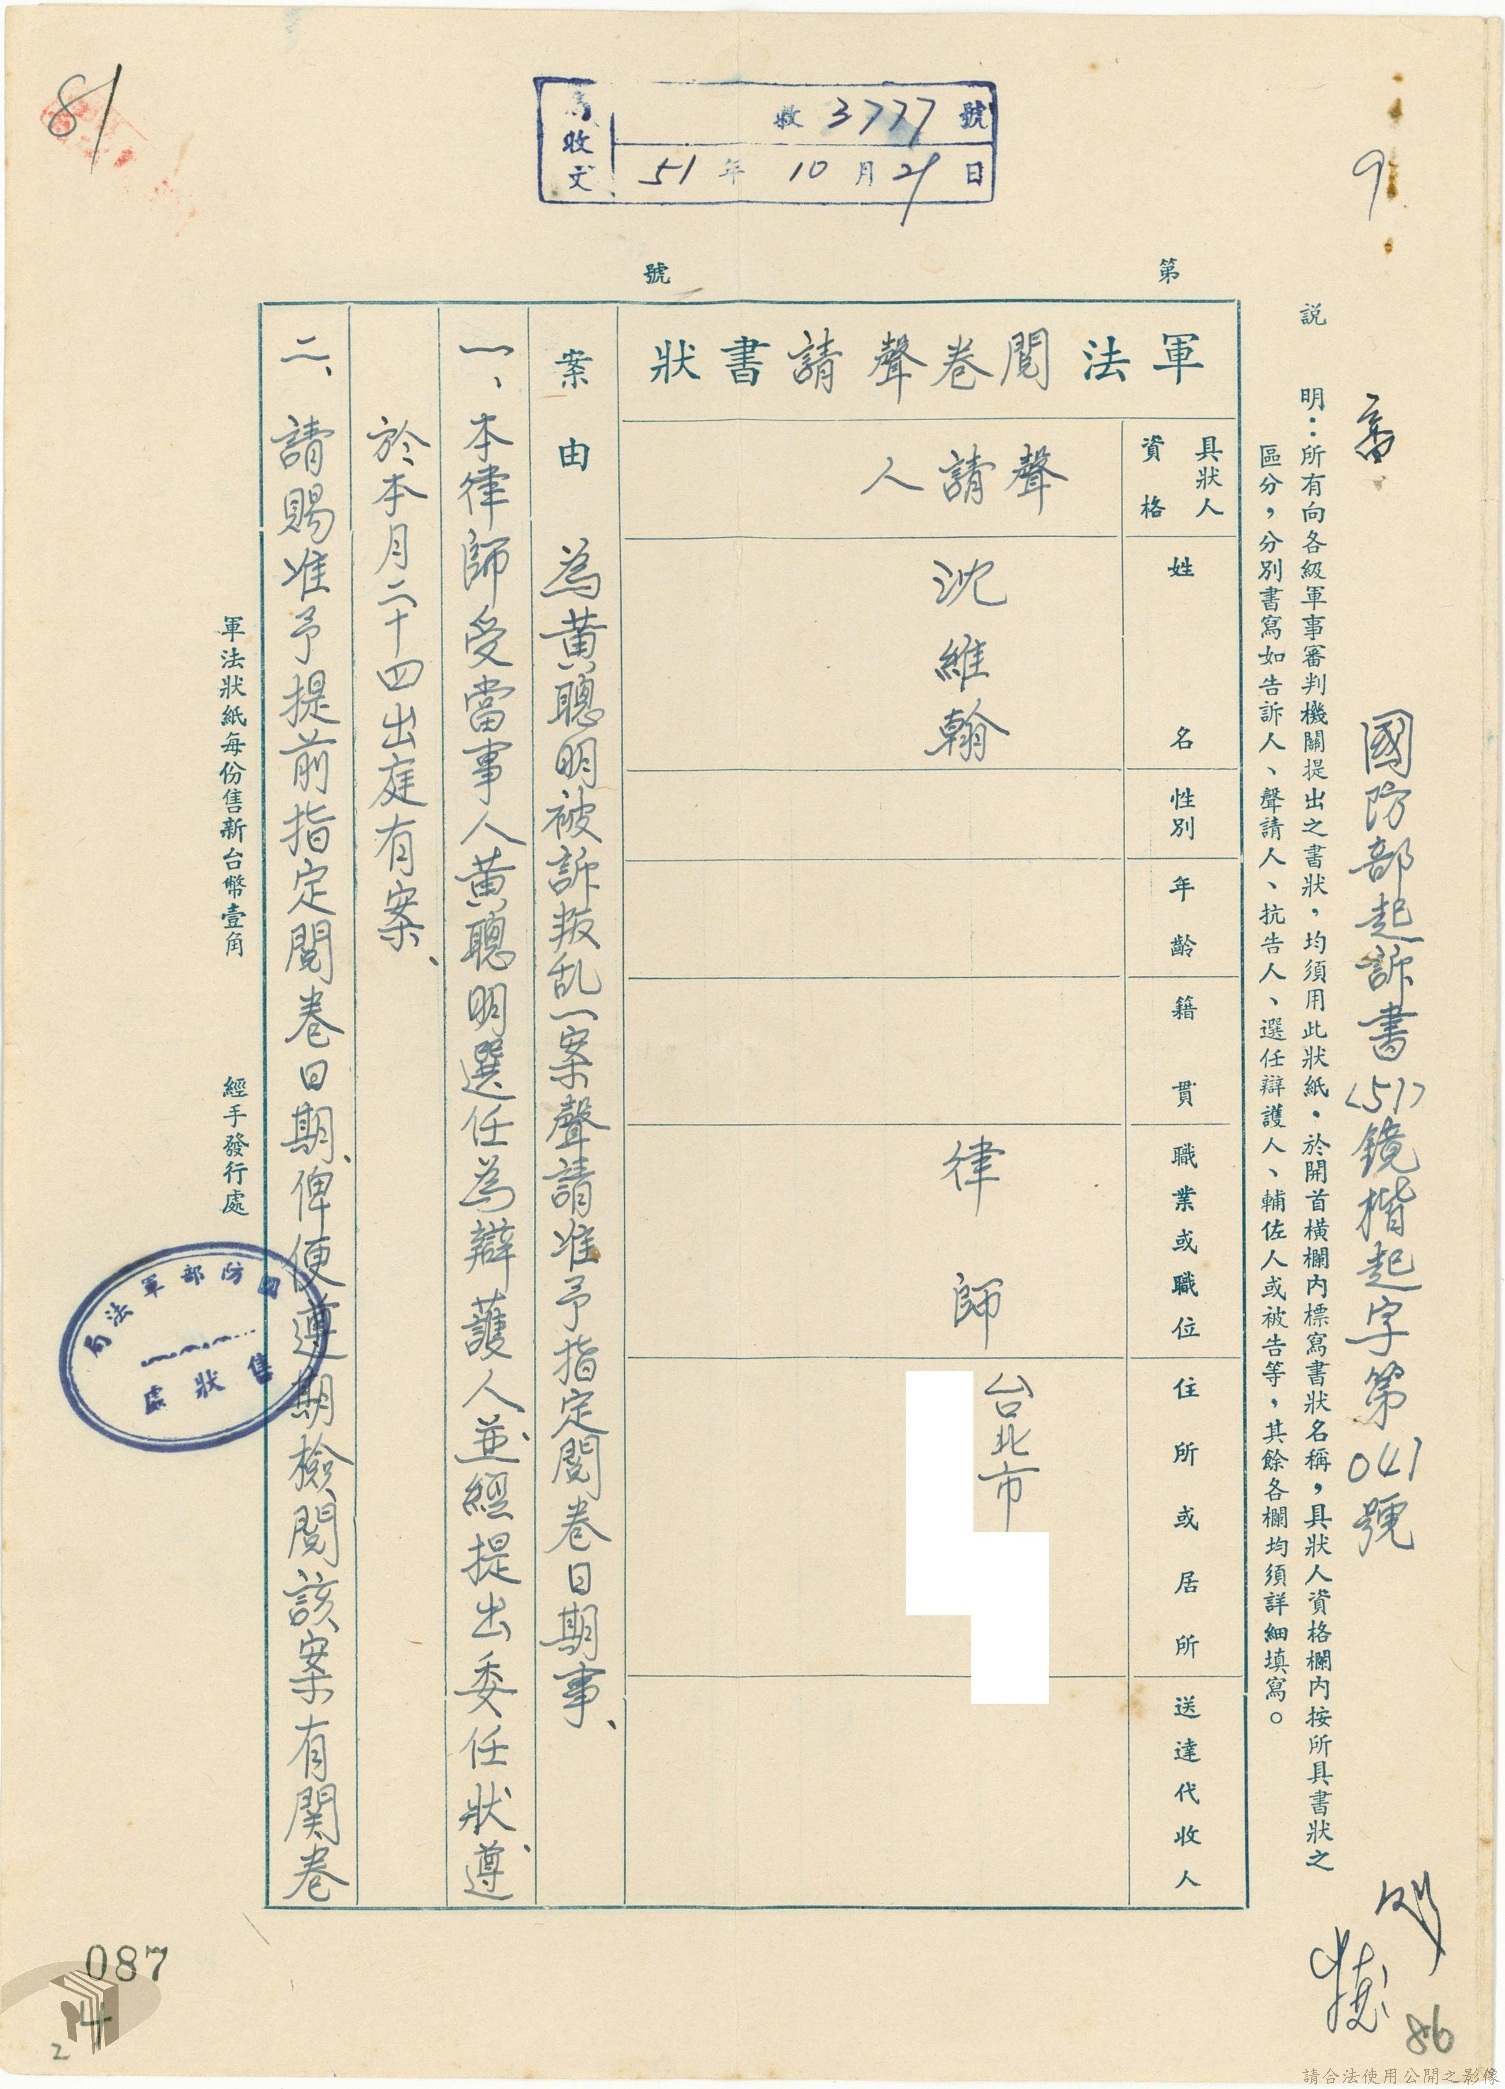 81
收 3777 號
收文
51 年 10 月 29 日
9
審
國防部起訴書(51)鏡楷起字第041號
說 明：所有向各級軍事審判機關提出之書狀，均須用此狀紙。於開首橫欄內標寫書狀名稱，具狀人資格欄內按所具書狀之
區分，分別書寫如告訴人、聲請人、抗告人、選任辯護人、輔佐人或被告等，其餘各欄均須詳細填寫。
第 號
軍法閱卷聲請書狀
具狀人資格
聲請人
姓名
沈維翰
性別
年齡
籍貫
職業或職位
律師
住所或居所
台北市
送達代收人
案由 為黃聰明被訴叛乱一案聲請准予指定閱卷日期事、
一、本律師受當事人黃聰明選任為辯護人並經提出委任狀、遵
於本月二十四出庭有案、
二、請賜准予提前指定閱卷日期、俾便遵期檢閱該案有関卷
軍法狀紙每份售新台幣壹角 經手發行處
國防部軍法局
售狀處
087
14
2
86
請合法使用公開之影像